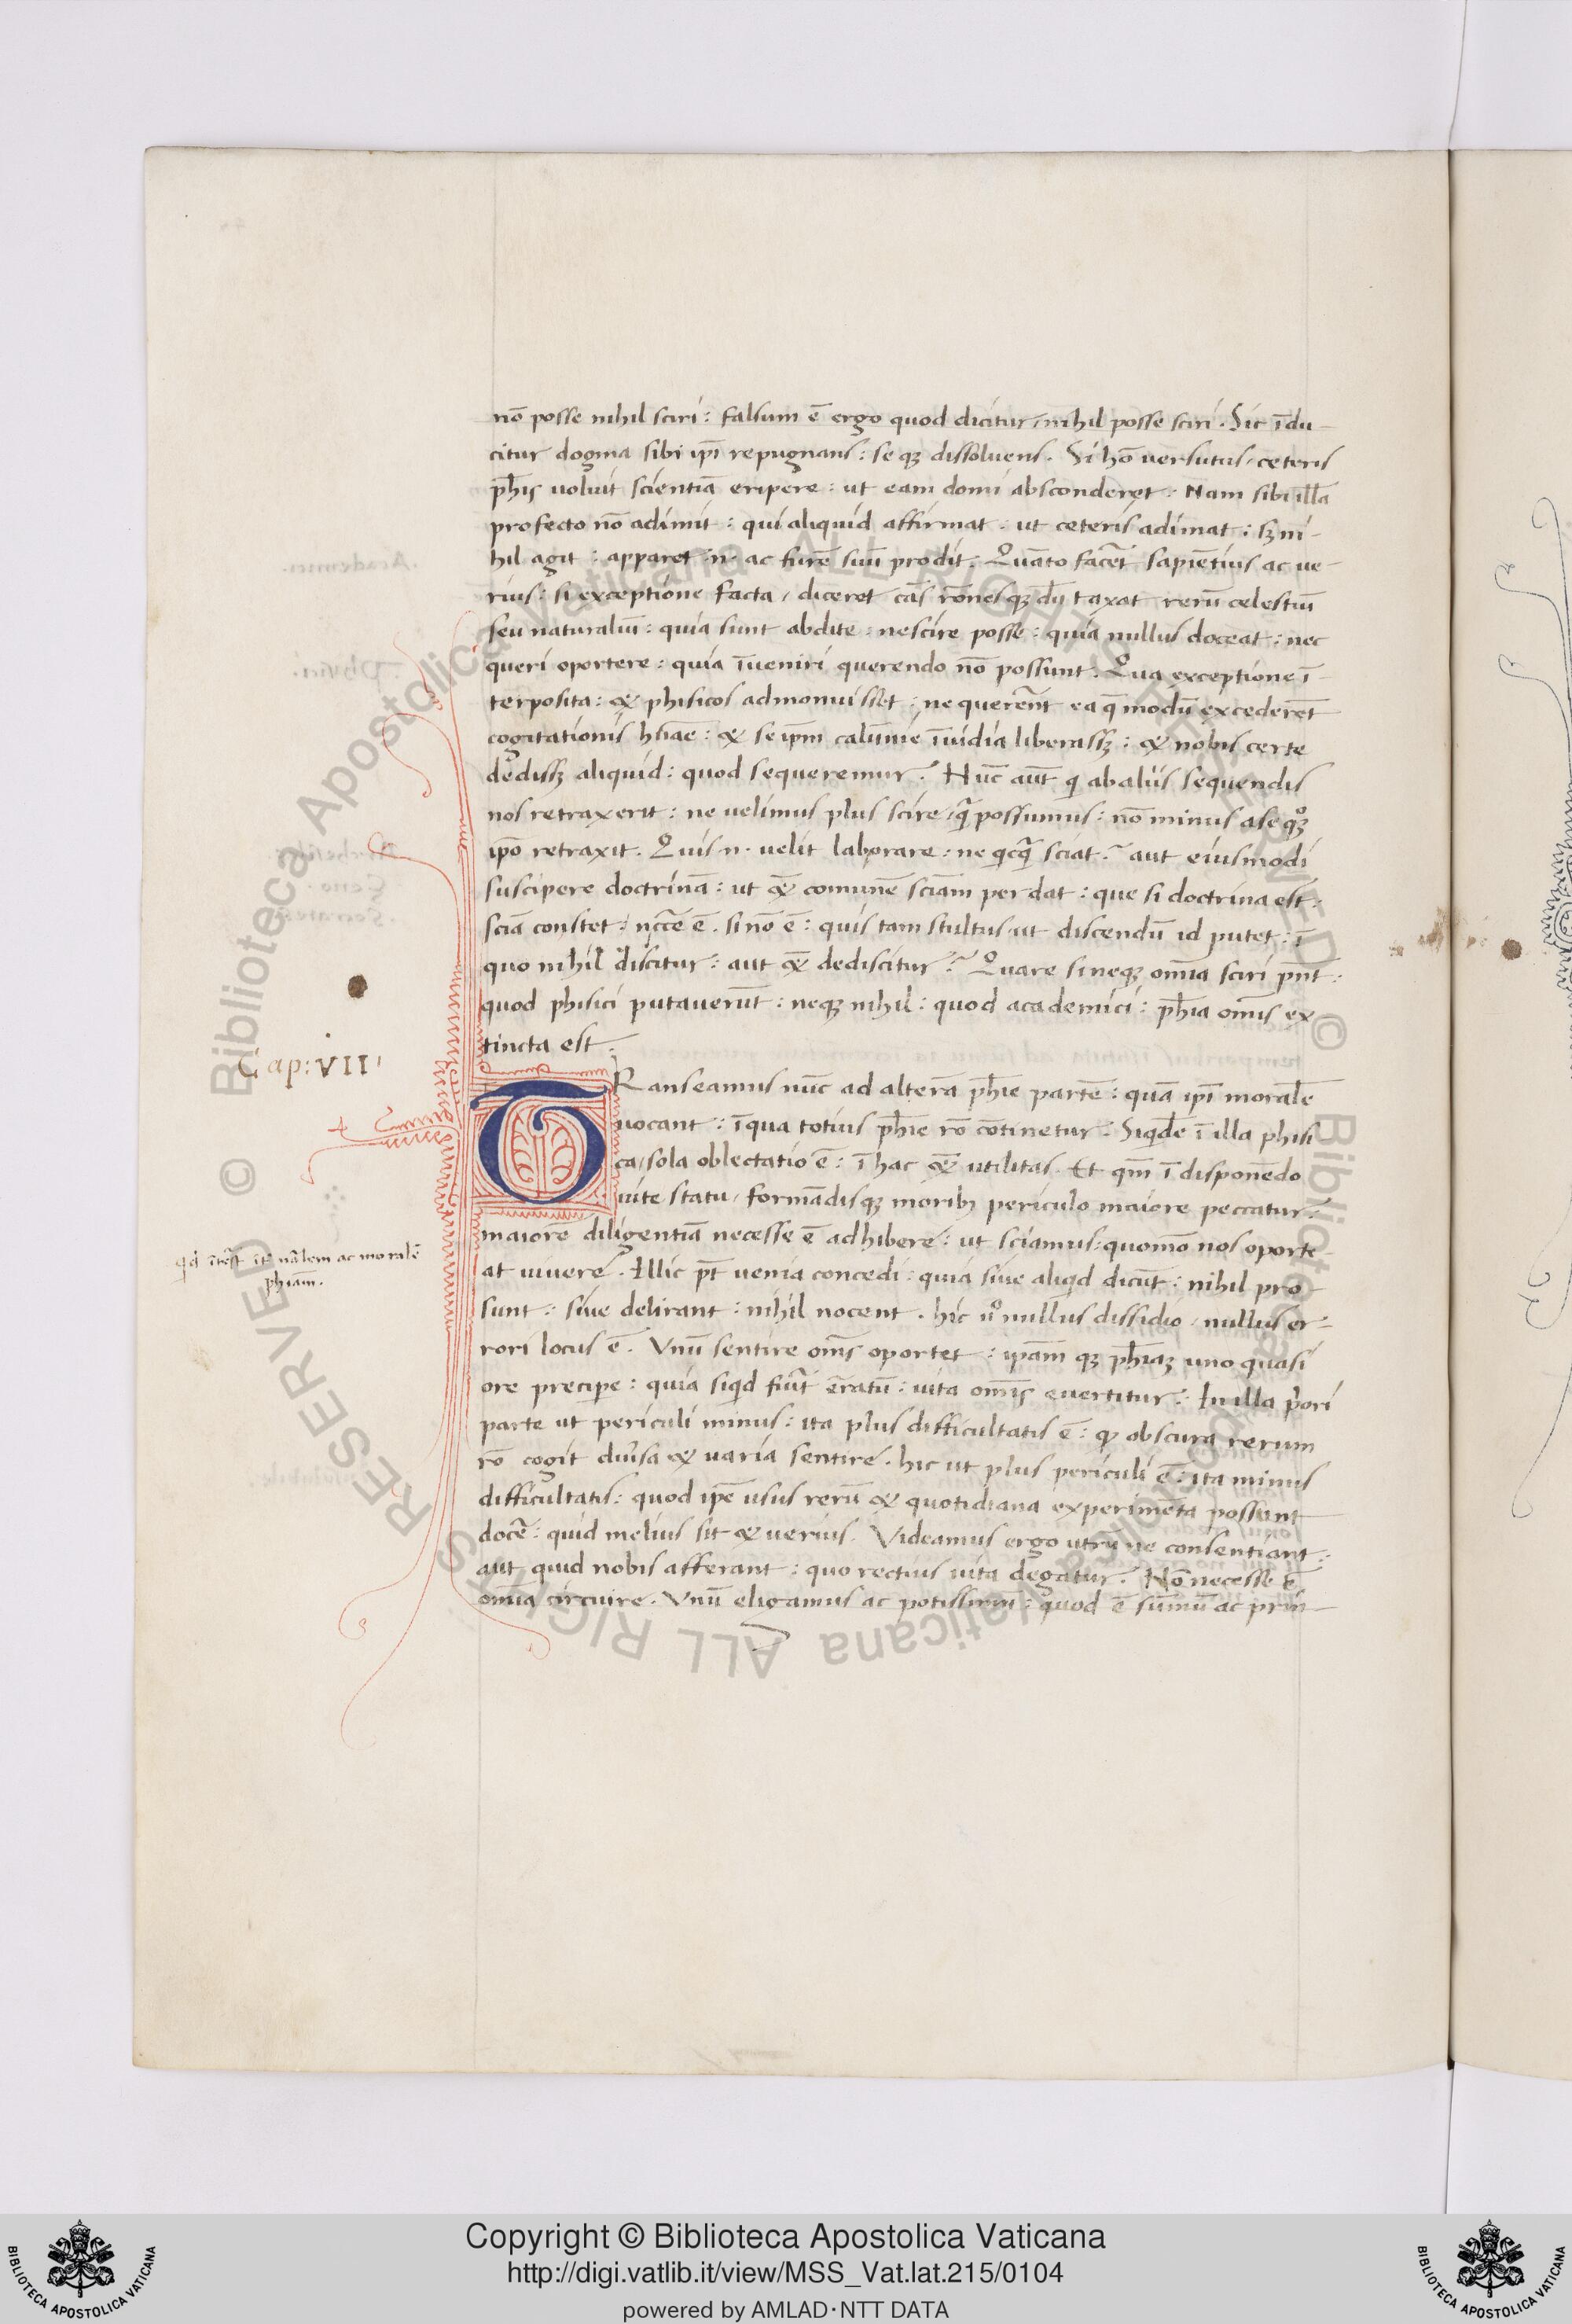 nō posse nihil sciri : falsum ē ergo quod dicitur / nihil posse sciri . Sic īdu-
citur dogma sibi ip̄i repugnans : seqꝫ dissoluens . Si hō uersutus / ceteris
ph̄is uoluit scientiā eripere : ut eam domi absconderet . Nam sibi illā
profecto nō adimit : qui aliquid affirmat . ut ceteris adimat : sꝫ ni-
hil agit : apparet .n. ac furē suū prodit . Quāto facēt sapiētius ac ue-
rius : si exceptione facta / diceret cās rōnesqꝫ dūtaxat rerū celestiū
seu naturaliū : quia sunt abdite : nescire posse : quia nullus doceat : nec
queri oportere : quia īueniri querendo nō possunt . Qua exceptione ī-
terposita : & phisicos admonuisset : ne querērnt ea q̄ modū excederēt
cogitationis hūāe : & se ip̄m calūnie īuidia liberassꝫ : & nobis certe
dedissꝫ aliquid : quod sequeremur . Nūc aūt q̇ ab aliis sequendis
nos retraxerit : ne uelimus plus scire / q̄ possumus : nō minus a se qͦqꝫ
ip̄o retraxit . Quis .n. uelit laborare : ne qicq̄ sciat ? aut eiusmodi
suscipere doctrinā : ut & comunē sciām perdat : que si doctrina est .
sciā constet : nccē ē . si nō ē : quis tam stultus ut discendū id putet : ī
quo nihil discitur : aut & dediscitur ? Quare si neqꝫ omīa sciri pn̄t :
quod phisici putauerūt : neqꝫ nihil : quod academici : ph̄ia omīs ex
tincta est .
Cap: VII
TRanseamus nūc ad alterā ph̄ie partē : quā ip̄i moralē
uocant : ī qua totius ph̄ie rō cōtinetur . Siqdē ī illa phisi
ca / sola oblectatio ē : ī hac & utilitas . Et qm̄ ī disponēdo
uite statu / formādisqꝫ moribꝫ periculo maiore peccatur :
maiorē diligentiā necesse ē adhibere : ut sciamus : quomō nos oporte
qd ītēst īt nālem ac moralē
phiām .
at uiuere . Illic pt̄ uenia concedi : quia siue aliqd dicūt : nihil pro
sunt : siue delirant : nihil nocent . hic uͦ nullus dissidio / nullus er-
rori locus ē . Vnū sentire omīs oportet : ipām qꝫ ph̄iaꝫ uno quasi
ore precipe : quia siqd fiūt ēratū : uita omīs euertitur . In illa p̄ori
parte ut periculi minus : ita plus difficultatis ē : qͥ obscura rerum
rō cogit diūsa & uaria sentire . hic ut plus periculi ē : ita minus
difficultatis : quod ipē usus rerū & quotidiana experimēta possunt
docē : quid melius sit & uerius . Videamus ergo utrū ne consentiant :
aut quid nobis afferant : quo rectius uita degatur . Nō necesse ē
omīa circuire . Vnū eligamus ac potissimū : quod ē sūmū ac prin-
Copyright © Biblioteca Apostolica Vaticana
http://digi.vatlib.it/view/MSS_Vat.lat.215/0104
powered by AMLAD·NTT DATA